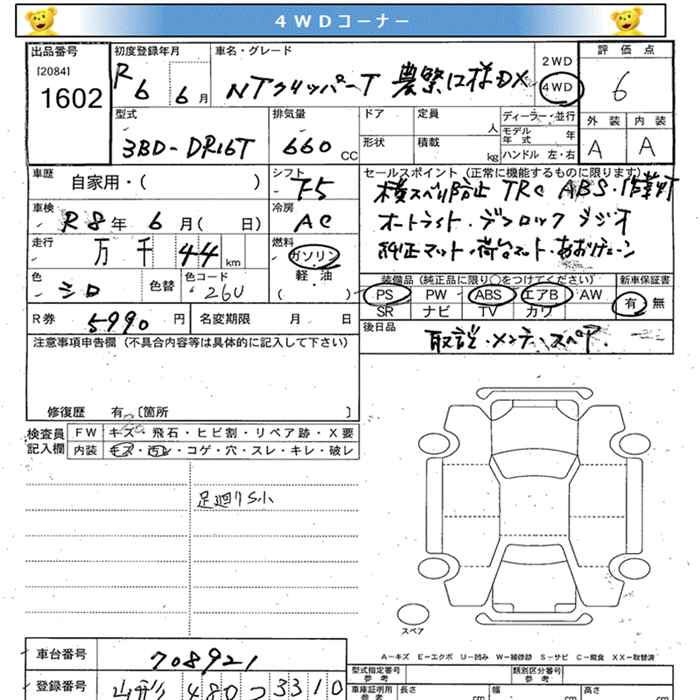 ４ＷＤコーナー
出品番号
[2084]
1602
初度登録年月
R6 6月
車名・グレード
NTクリッパーT 農繁仕様DX
2WD
4WD
評価点
6
外装 内装
A A
型式
3BD-DR16T
排気量
660 CC
ドア
定員
人
形状
積載
kg
ディーラー・並行
モデル年式 年
ハンドル 左・右
車歴
自家用・( )
シフト
F5
車検
R8年 6月( 日)
冷房
AC
走行
万 千 44 km
燃料
ガソリン
軽・油
( )
色
シロ
色替
色コード
26U
R券
5990 円
名変期限 月 日
セールスポイント (正常に機能するものに限ります)
横スベリ防止 TRC ABS・作業灯
オートライト・デフロック ラジオ
純正マット・荷台マット・あおりチェーン
装備品(純正品に限り○をつけてください)
PS PW ABS エアB AW
SR ナビ TV カワ
新車保証書
有 無
後日品
取説・メンテ・スペア
注意事項申告欄 (不具合内容等は具体的に記入して下さい)
修復歴 有 [箇所 ]
検査員記入欄
FW キズ・飛石・ヒビ割・リペア跡・X要
内装 キズ・汚レ・コゲ・穴・スレ・キレ・破レ
足廻りS小
スペア
A=キズ E=エクボ U=凹み W=補修跡 S=サビ C=腐食 XX=取替済
車台番号
708921
登録番号
山形 480 つ 3310
型式指定番号
参考
類別区分番号
参考
車庫証明用
参考
長さ cm
幅 cm
高さ cm